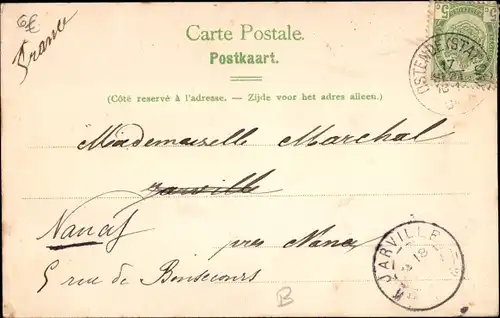 6€
France
Carte Postale.
Postkaart.
(Côté reservé à l'adresse. — Zijde voor het adres alleen.)
OSTENDE (STATION)
Mademoiselle Marchal
Jarville
Nancy près Nancy
5 rue de Bonsecours
JARVILLE
18
B